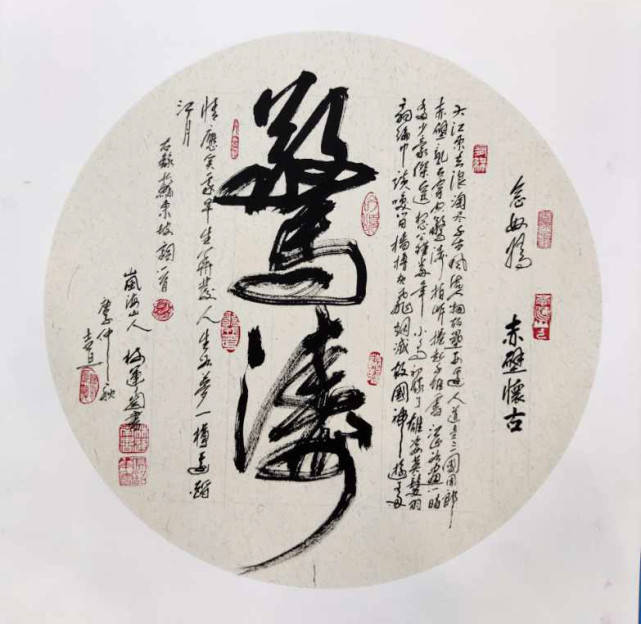 念奴嬌
赤壁懷古
大江東去浪淘盡千古風流人物故壘西邊人道是三國周郎
赤壁亂石穿空驚濤拍岸捲起千堆雪江山如畫一時
多少豪傑遙想公瑾當年小喬初嫁了雄姿英發羽
扇綸巾談笑間檣櫓灰飛煙滅故國神遊多
驚濤
情應笑我早生華髮人生如夢一樽還酹
江月
右錄蘇東坡詞一首
嵐海山人
仲秋
吉旦